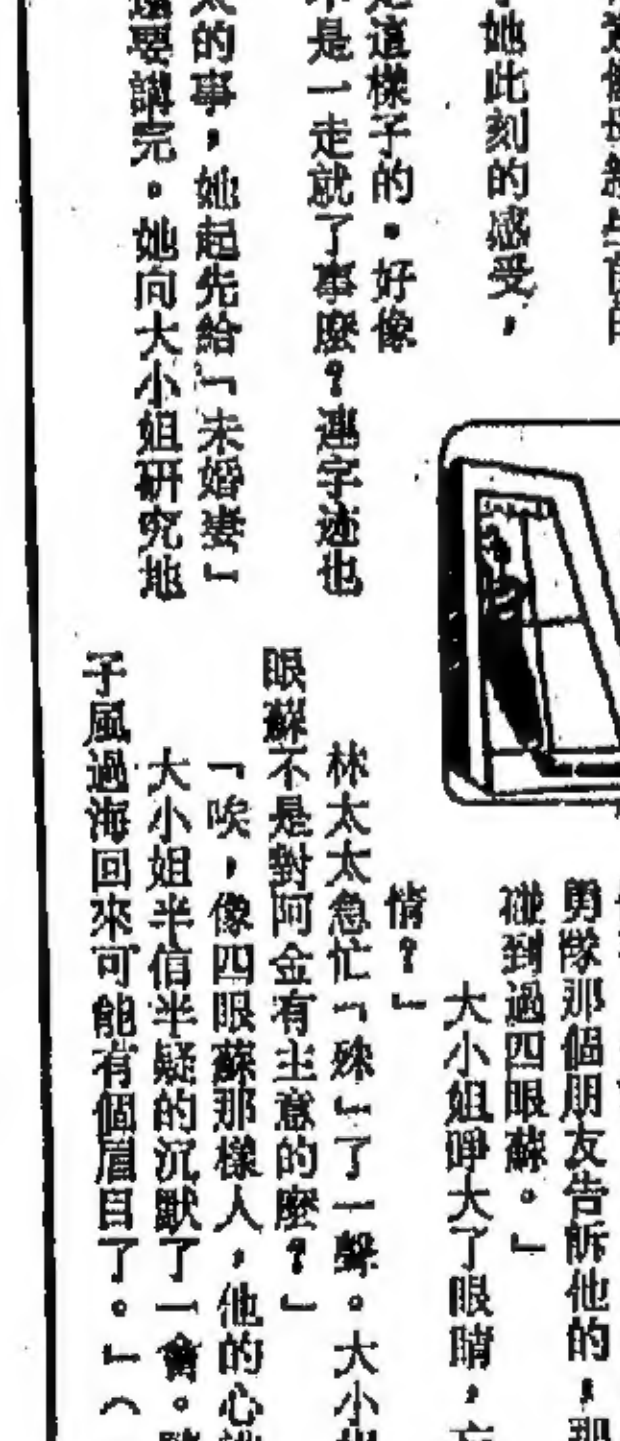 她此刻的感受，
是這樣子的。好像
不是一走就了事麼？連字迹也
太的事，她起先給「未婚妻」
要講完。她向大小姐研究地
勇隊那個朋友告訴他的，那
碰到過四眼蘇。」
大小姐睜大了眼睛，
情？」
林太太急忙「殊」了一聲。大小姐
眼蘇不是對阿金有主意的麼？」
「唉，像四眼蘇那樣人，他的心
大小姐半信半疑的沉默了一會。
子風過海回來可能有個眉目了。」（